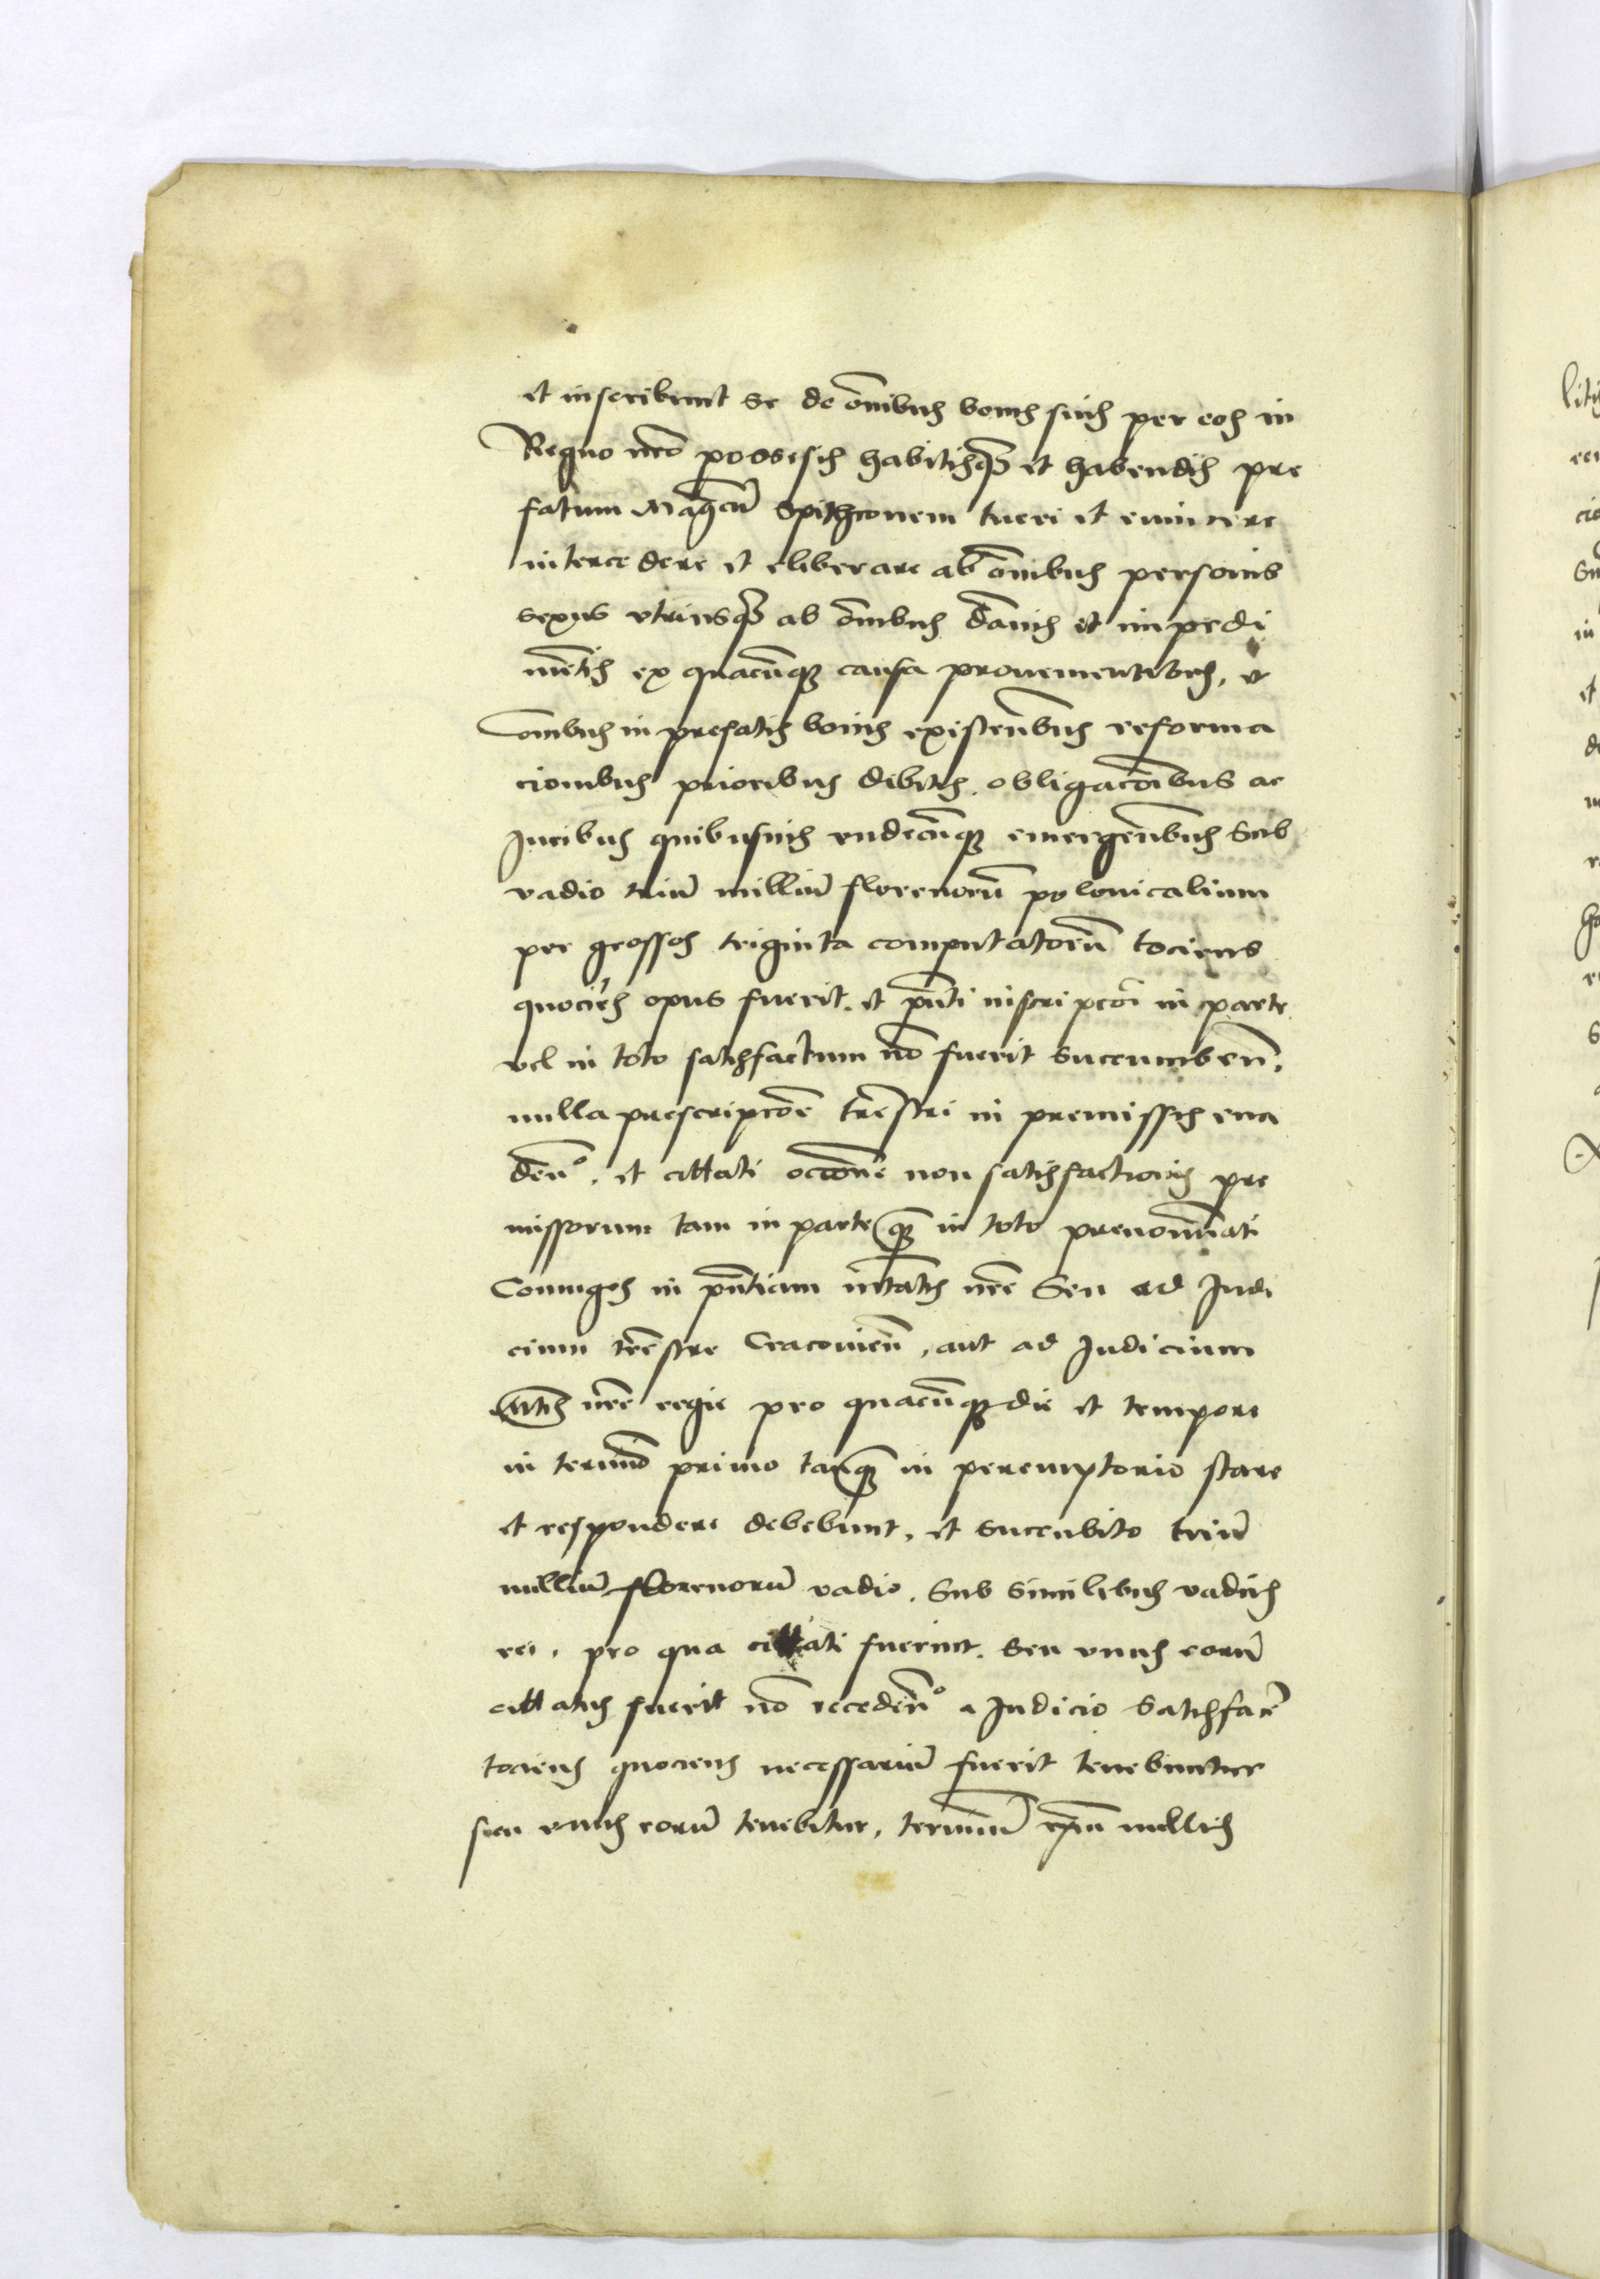 et inscribunt se de om̄ibus bonis suis per eos in
Regno nr̄o possessis habitisq̄ et habendis pre
fatum Magcū Spithconem tueri et euincere
intercedere et eliberare ab om̄ibus personis
sexus vtriusq̄ ab om̄ibus dam̄is et impedi
mētis ex quacūq₃ causa prouenientibus, et
om̄ibus in prefatis bonis existen̄bus reforma
cionibus prioribus debitis obligacōibus ac
Iuribus quibusuis vndecūq₃ emergen̄bus Sub
vadio triū milliū florenorū polonicalium
per grossos triginta computatorū tociens
quociēs opus fuerit. et pn̄ti inscripcōi in parte
vel in toto satisfactum nō fuerit Succumben̄.
nulla prescripcōe tre̅stri in premissis eua
den̄º. et citati occōne non satisfactionis pre
missorum tam in parte q̄₃ in toto prenomīati
Coniuges in pn̄tiam mt̄atis nr̄e Seu ad Iudi
cium tre̅stre Cracouien̄, aut ad Iudicium
mt̄tis nr̄e regie pro quacūq₃ die et tempore
in termīo primo tanq̄₃ in peremptorio stare
et respondere debebunt, et Succubito triū
milliū florenorū vadio. Sub Similibus vadiis
rei, pro qua citati fuerint. Seu vnus eorū
citatus fuerit nō receden̄º a Iudicio Satisfacē
tociens quociens necessariū fuerit tenebuntur
seu vnus eorū tenebitur, termīū ip̄m nullis